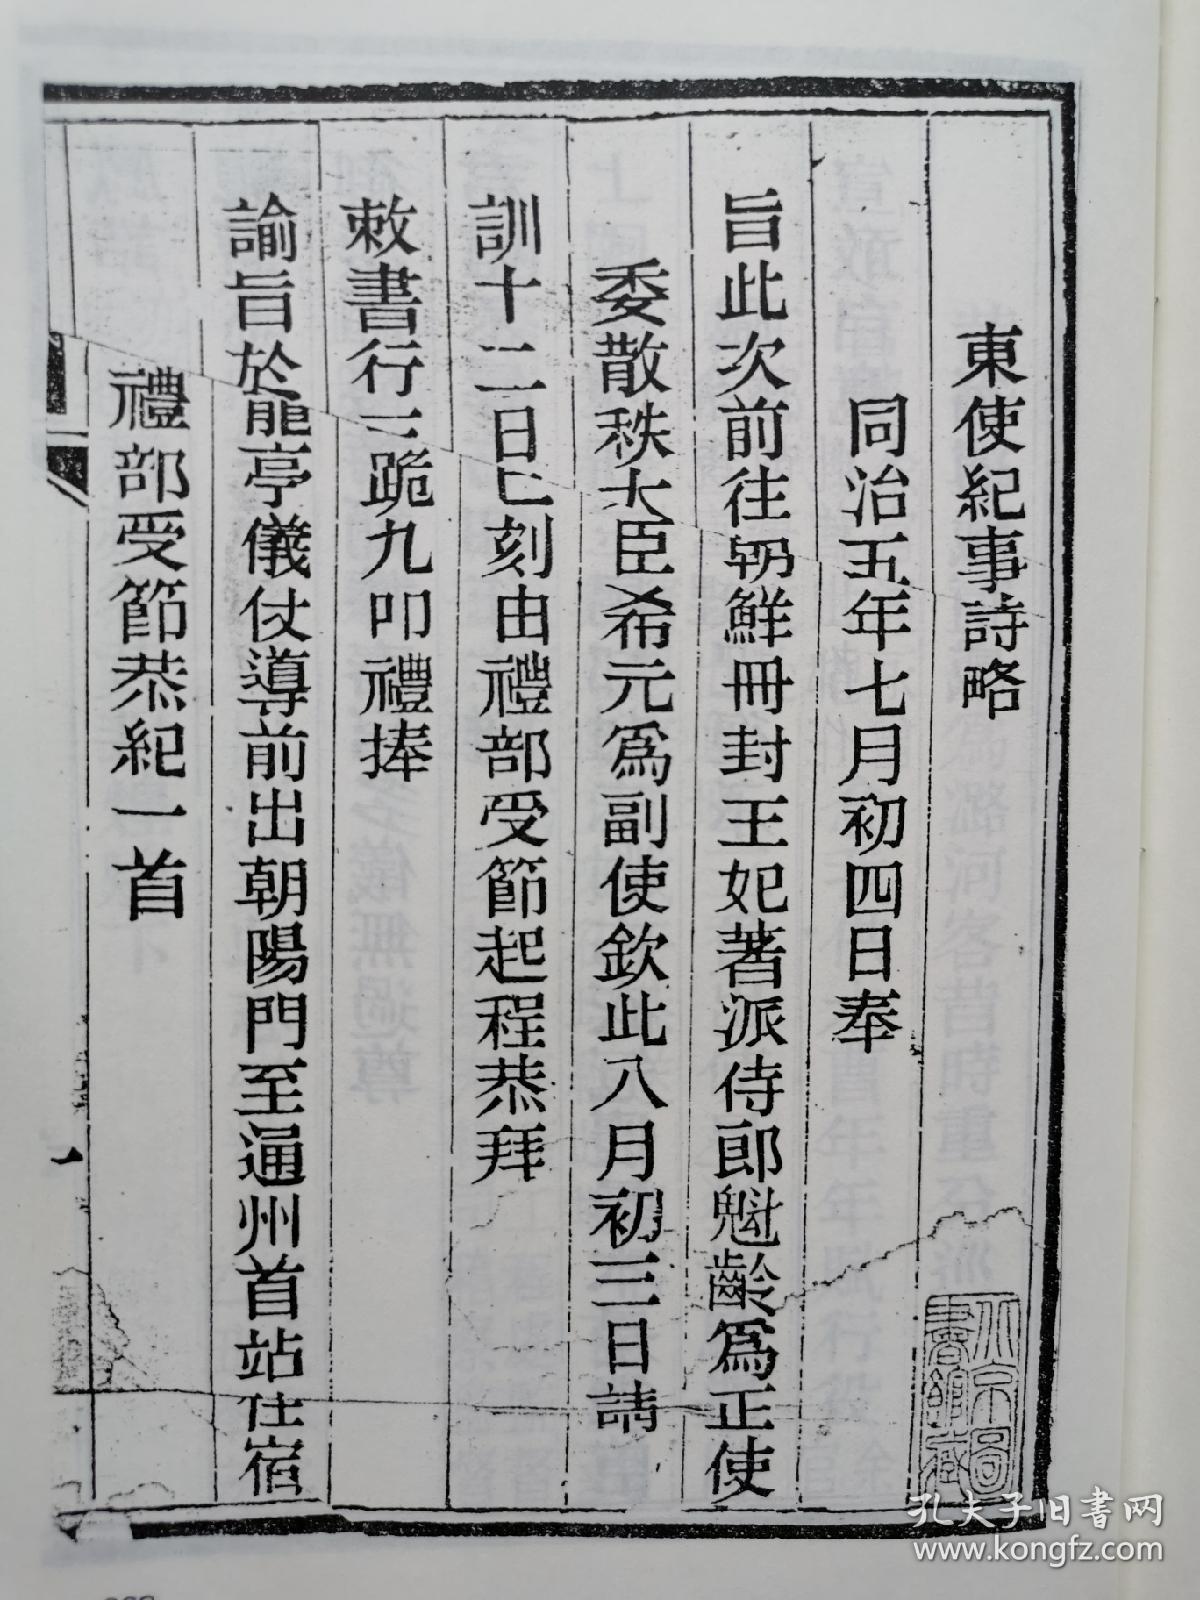 東使紀事詩略
同治五年七月初四日奉
旨此次前往朝鮮冊封王妃著派侍郎魁齡爲正使
委散秩大臣希元爲副使欽此八月初三日請
訓十二日巳刻由禮部受節起程恭拜
敕書行三跪九叩禮捧
諭旨於龍亭儀仗導前出朝陽門至通州首站住宿
禮部受節恭紀一首
一
北京圖
書館藏
孔夫子旧书网
www.kongfz.com